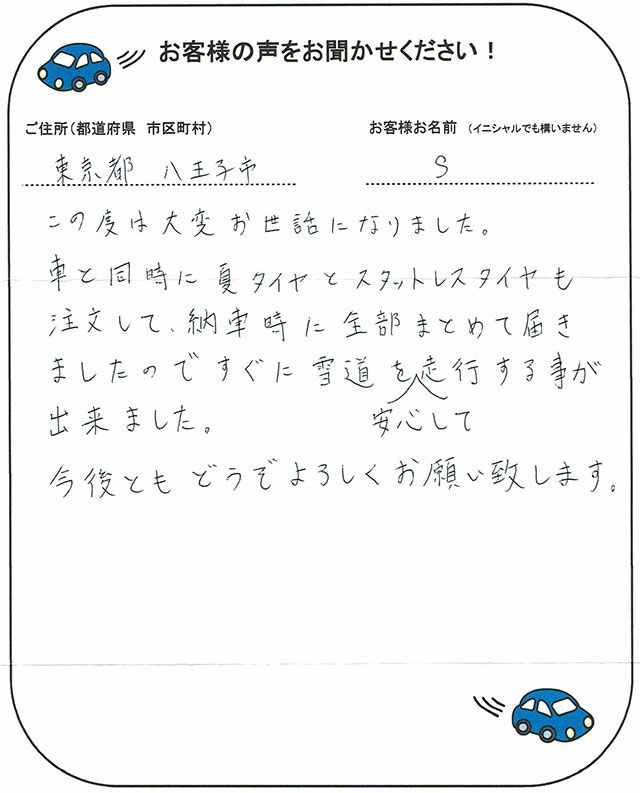 お客様の声をお聞かせください！
ご住所(都道府県 市区町村)
お客様お名前 (イニシャルでも構いません)
東京都 八王子市
S
この度は大変お世話になりました。
車と同時に夏タイヤとスタットレスタイヤも
注文して、納車時に全部まとめて届き
ましたのですぐに雪道を走行する事が
安心して
出来ました。
今後ともどうぞよろしくお願い致します。